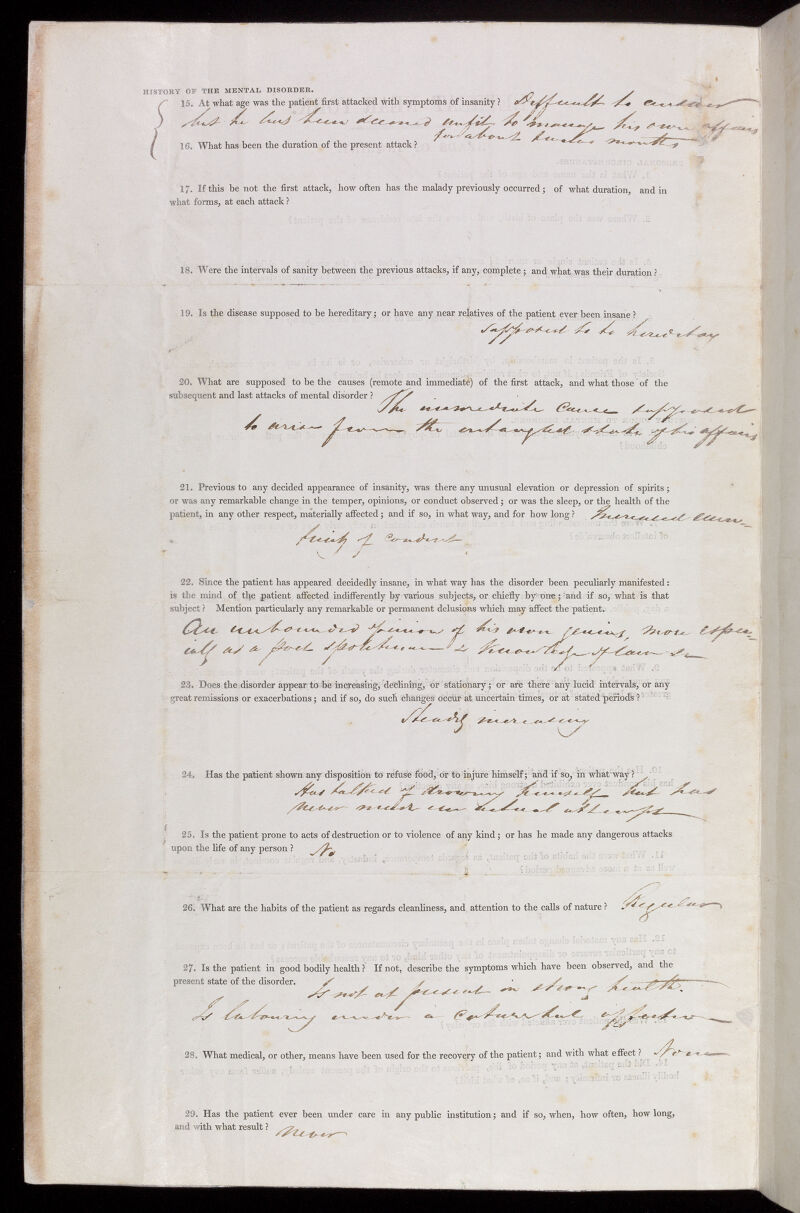 HISTORY OF THE MENTAL DISORDER.
15. At what age was the patient first attacked with symptoms of insanity? Difficult to answer
but he has been deemed unfit to manage his own affairs
for about twelve months
16. What has been the duration of the present attack?
17. If this be not the first attack, how often has the malady previously occurred; of what duration, and in
what forms, at each attack?
18. Were the intervals of sanity between the previous attacks, if any, complete; and what was their duration?
19. Is the disease supposed to be hereditary; or have any near relatives of the patient ever been insane?
Supposed to be hereditary
20. What are supposed to be the causes (remote and immediate) of the first attack, and what those of the
subsequent and last attacks of mental disorder?
The immediate cause supposed
to arise from the entangled state of his affairs
21. Previous to any decided appearance of insanity, was there any unusual elevation or depression of spirits;
or was any remarkable change in the temper, opinions, or conduct observed; or was the sleep, or the health of the
patient, in any other respect, materially affected; and if so, in what way, and for how long? Increased eccen-
tricity of conduct
22. Since the patient has appeared decidedly insane, in what way has the disorder been peculiarly manifested:
is the mind of the patient affected indifferently by various subjects, or chiefly by one; and if so, what is that
subject? Mention particularly any remarkable or permanent delusions which may affect the patient.
An unbounded opinion of his own genius, more espec-
ially as a poet sportsman & knowledge of law &c
23. Does the disorder appear to be increasing, declining, or stationary; or are there any lucid intervals, or any
great remissions or exacerbations; and if so, do such changes occur at uncertain times, or at stated periods?
Steadily increasing
24. Has the patient shown any disposition to refuse food, or to injure himself; and if so, in what way?
Has talked of drowning himself but has
never made an actual attempt
25. Is the patient prone to acts of destruction or to violence of any kind; or has he made any dangerous attacks
upon the life of any person? No
26. What are the habits of the patient as regards cleanliness, and attention to the calls of nature? Regular
27. Is the patient in good bodily health? If not, describe the symptoms which have been observed, and the
present state of the disorder.
Is not at present in strong health.
Is labouring under a catarrhal affection
28. What medical, or other, means have been used for the recovery of the patient; and with what effect? None
29. Has the patient ever been under care in any public institution; and if so, when, how often, how long,
and with what result? Never